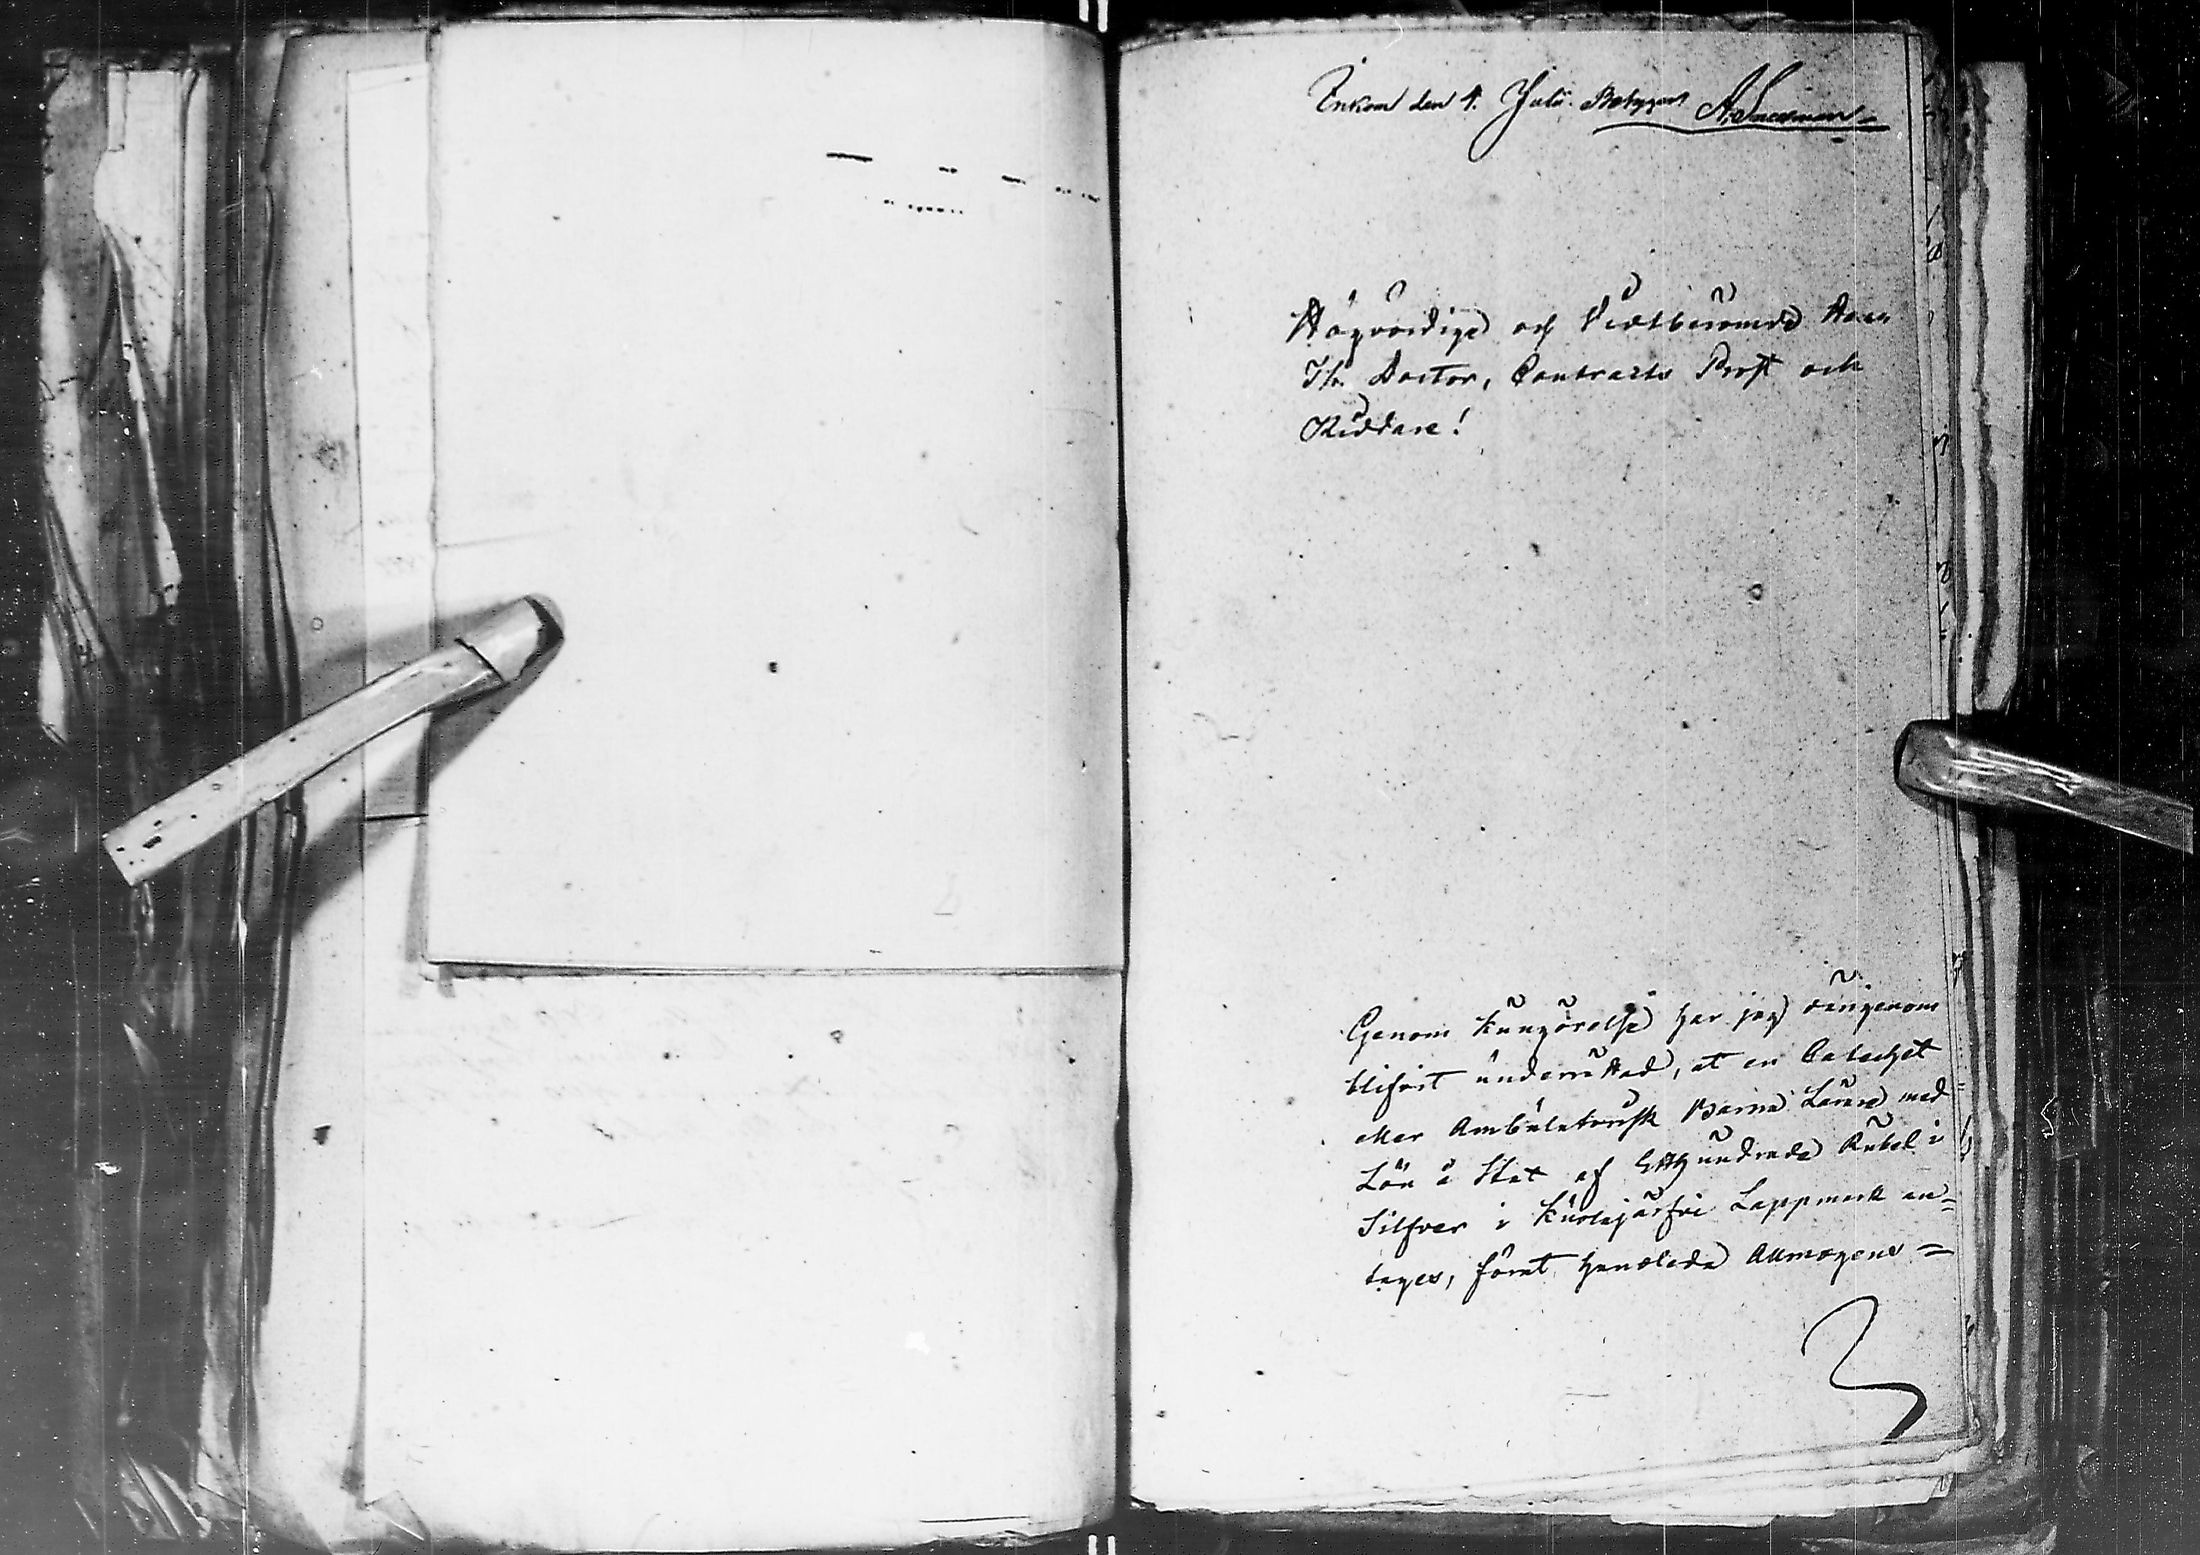 Inkom den 4. Julii. Betygar
Högvördige och Vidtberömde Herr
Th. Doctor, Contracts Prost och
Riddare!
Genom Kungörelse har jag därigenom
blifvit underrättad, at en Catechet
eller Ambulatorisk Barna Lärare med
Lön å Stat af Etthundrade Rubel i
Silfver i Kuolajärfvi Lappmark an=
tages, föret handleda Allmogens=